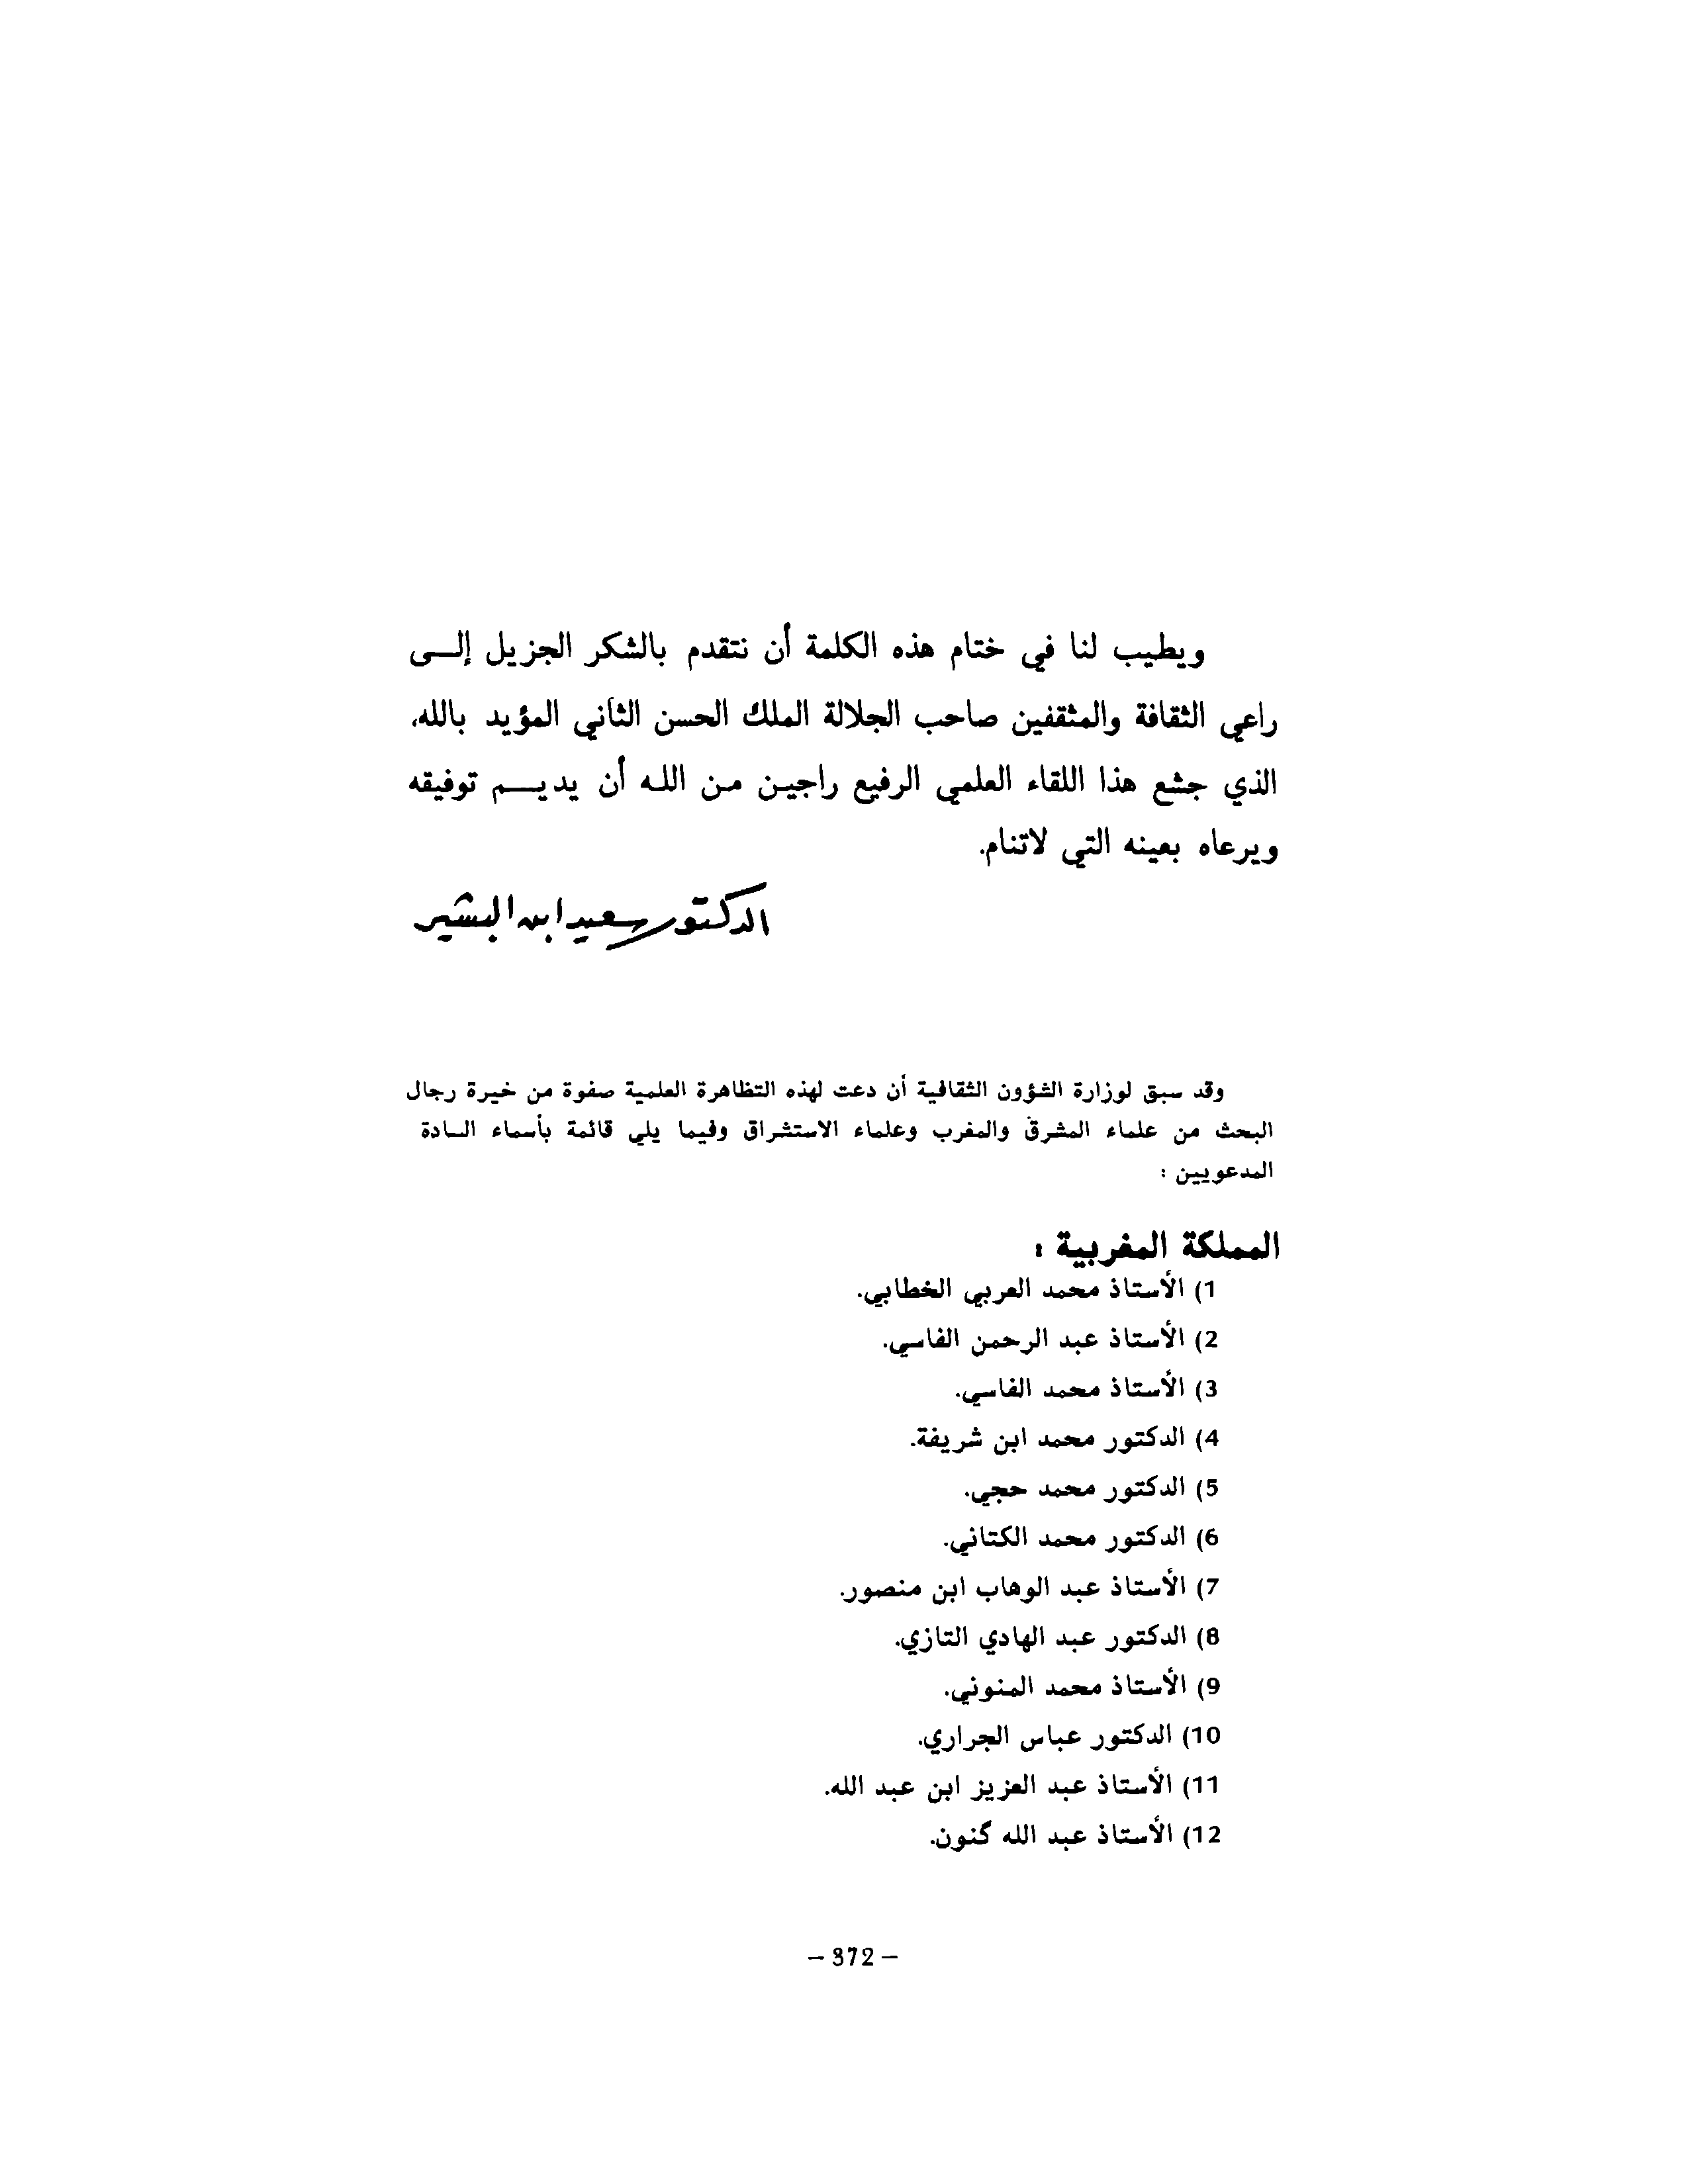 ويطيب لنا في ختام هذه الكلمة أن نتقدم بالشكر الجزيل إلى
راعي الثقافة والمثقفين صاحب الجلالة الملك الحسن الثاني المؤيد بالله،
الذي جشع هذا اللقاء العلمي الرفيع راجين من الله أن يديم توفيقه
ويرعاه بعينه التي لاتنام.
الدكتور سعيد ابن البشير
وقد سبق لوزارة الشؤون الثقافية أن دعت لهذه التظاهرة العلمية صفوة من خيرة رجال
البحث من علماء المشرق والمغرب وعلماء الاستشراق وفيما يلي قائمة بأسماء السادة
المدعويين :
المملكة المغربية :
1) الأستاذ محمد العربي الخطابي.
2) الأستاذ عبد الرحمن الفاسي.
3) الأستاذ محمد الفاسي.
4) الدكتور محمد ابن شريفة.
5) الدكتور محمد حجي.
6) الدكتور محمد الكتاني.
7) الأستاذ عبد الوهاب ابن منصور.
8) الدكتور عبد الهادي التازي.
9) الأستاذ محمد المنوني.
10) الدكتور عباس الجراري.
11) الأستاذ عبد العزيز ابن عبد الله.
12) الأستاذ عبد الله گنون.
– 372 –